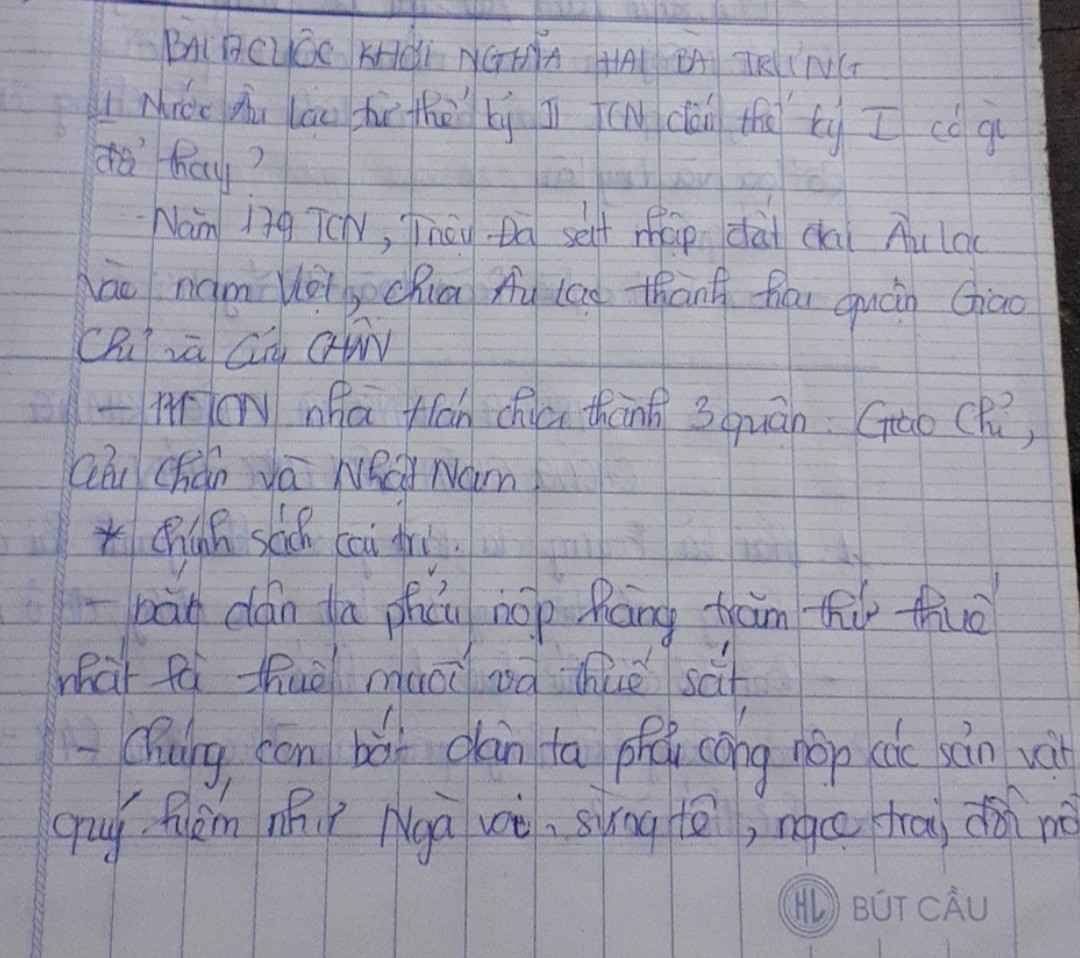 BÀI CUỘC KHỞI NGHĨA HAI BÀ TRƯNG
1 Nước Âu Lạc từ thế kỷ II TCN đến thế kỷ I có gì
đổ thay?
- Năm 179 TCN, Triệu Đà sát nhập đất đai Âu Lạc
vào nam Việt, chia Âu Lạc thành hai quận Giao
Chỉ và CHÂN
- TCN nhà Hán chia thành 3 quận: Giao Chỉ,
Cửu Chân và Nhật Nam
* Chính sách cai trị.
- bắt dân ta phải nộp hàng trăm thứ thuế
nhất là thuế muối và thuế sắt
- Chúng còn bắt dân ta phải cống nộp các sản vật
quý hiếm như Ngà voi, sừng tê, ngọc trai, đồi mồ
HL BÚT CẦU